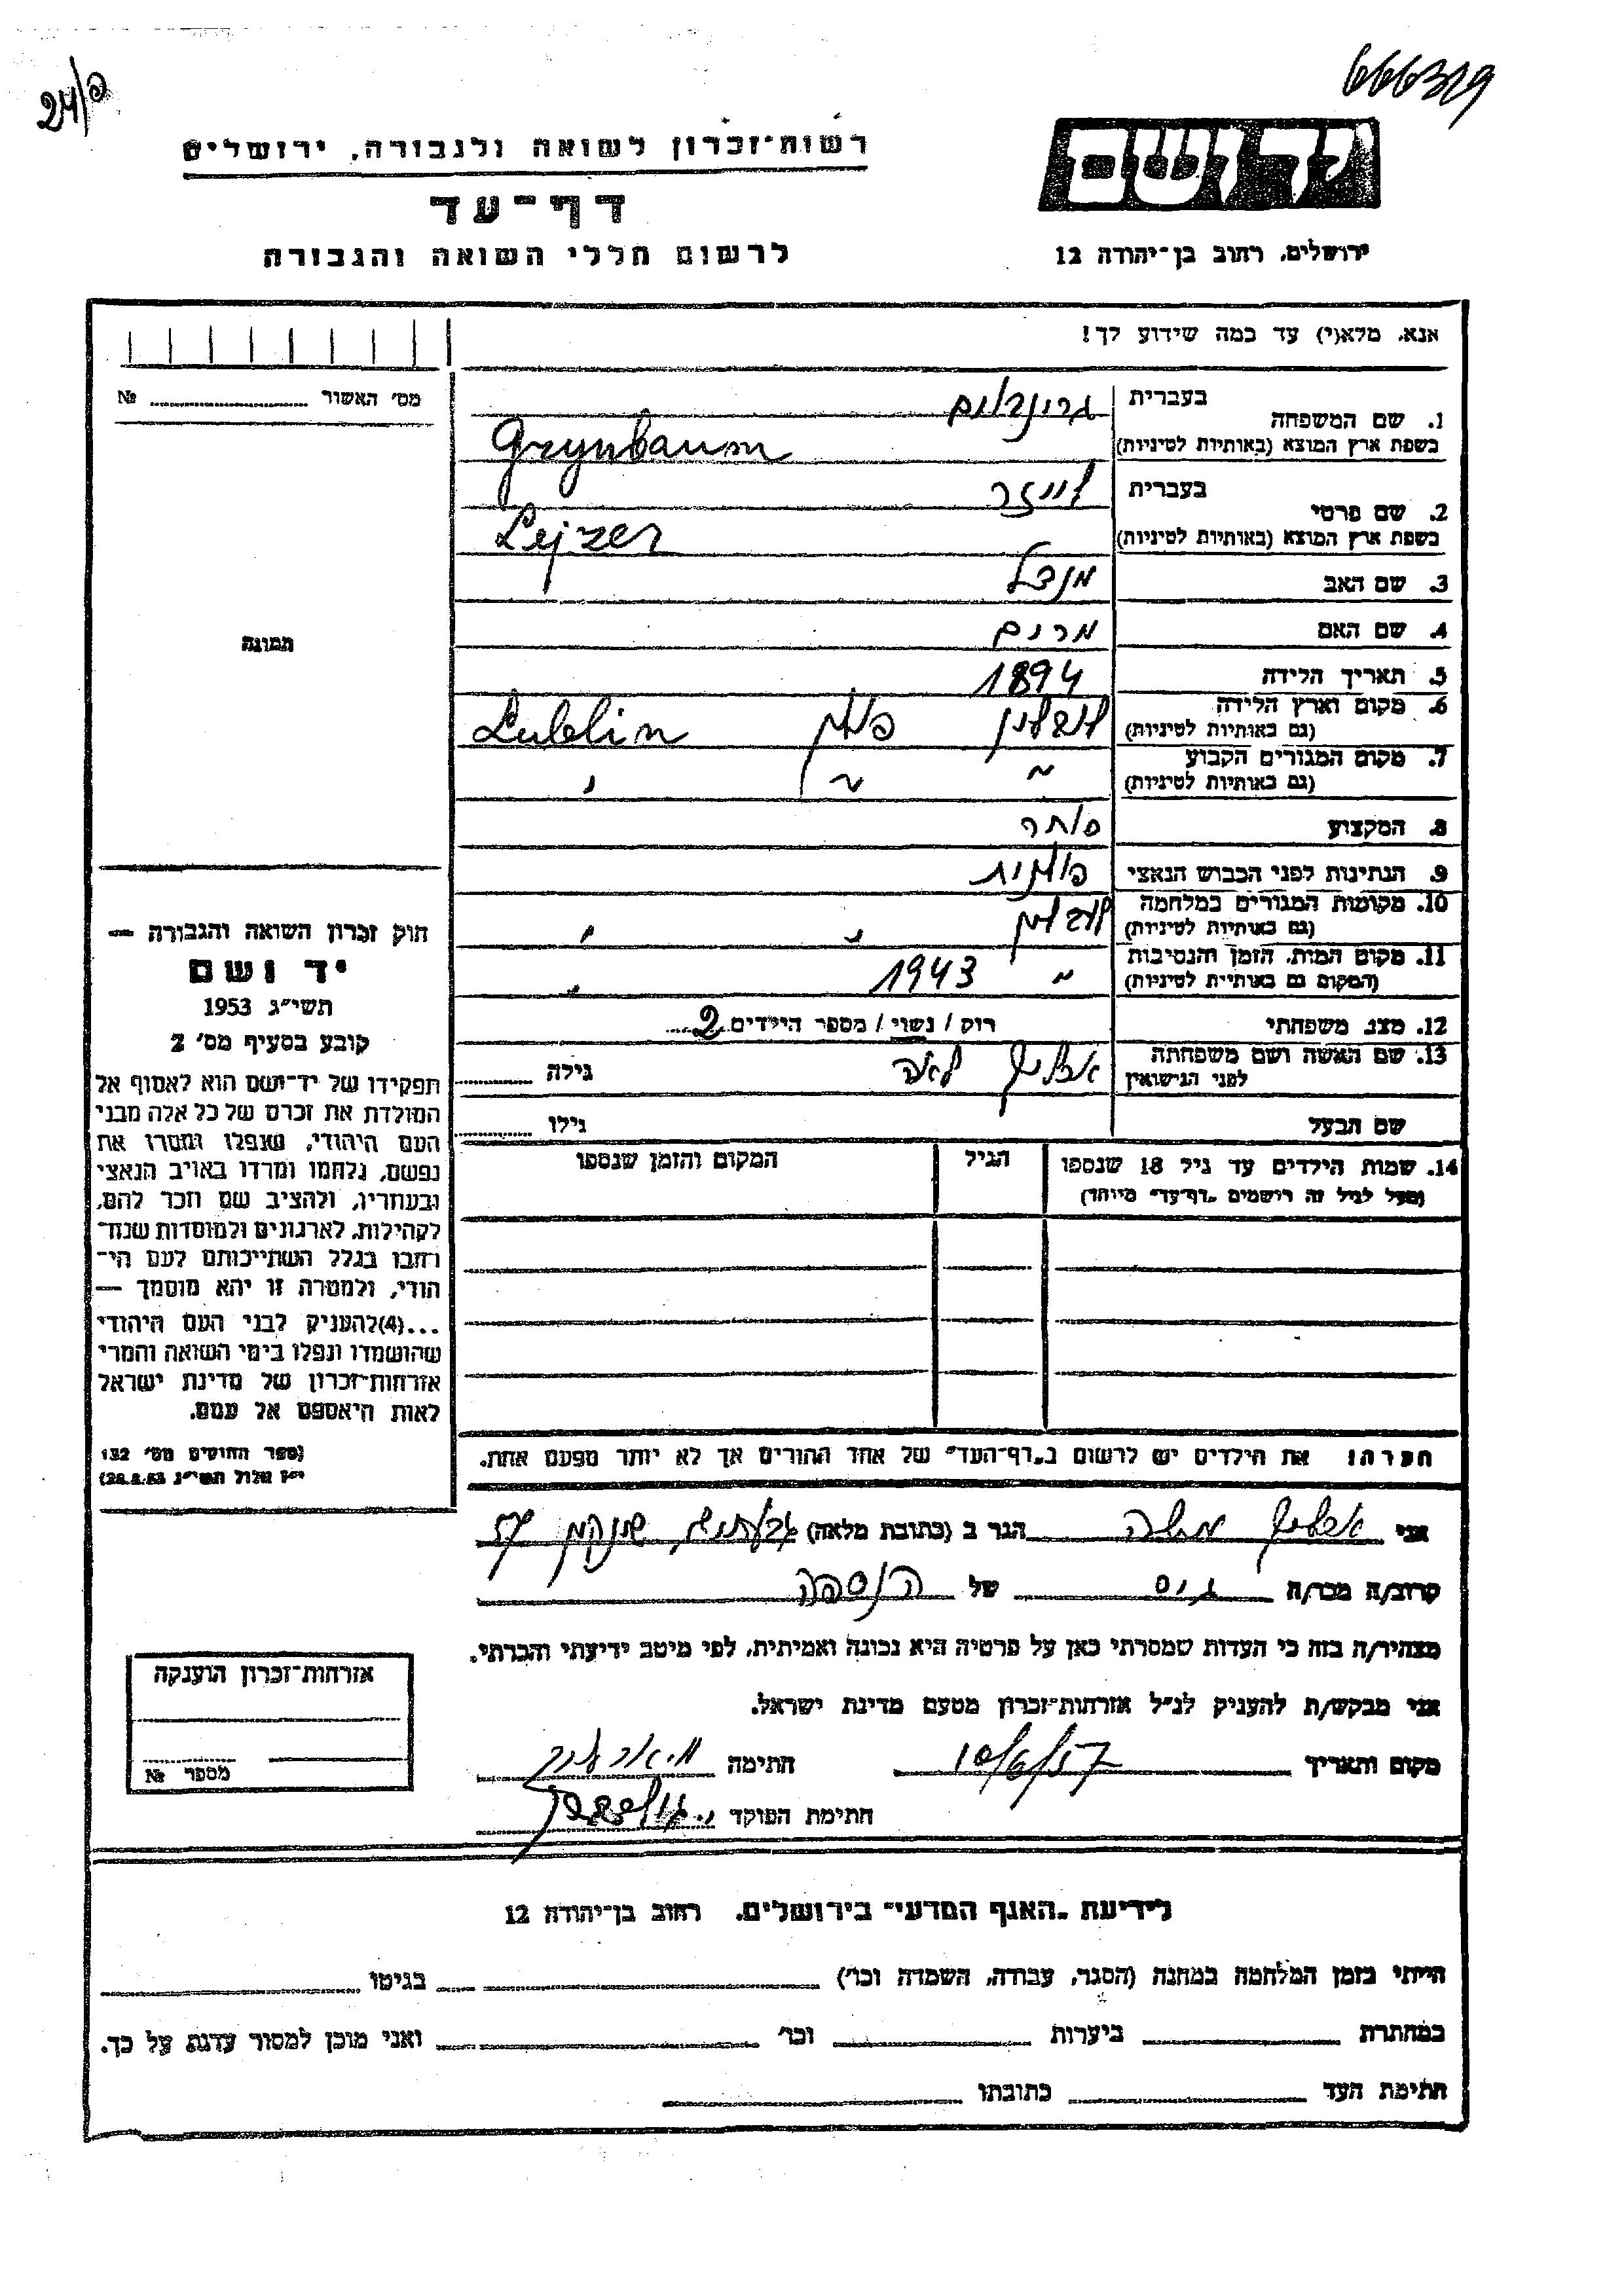 24/פ
666319
יד ושם
ירושלים, רחוב בן־יהודה 12
רשות־זכרון לשואה ולגבורה, ירושלים
דף־עד
לרשום חללי השואה והגבורה
אנא, מלא(י) עד כמה שידוע לך!
מס׳ האשור № 
1. שם המשפחה בעברית גרינבוים
בשפת ארץ המוצא (באותיות לטיניות) Grynbaum
2. שם פרטי בעברית לייזר
בשפת ארץ המוצא (באותיות לטיניות) Lejzer
3. שם האב מנדל
4. שם האם מרים
5. תאריך הלידה 1894
6. מקום וארץ הלידה (גם באותיות לטיניות) לובלין פולין Lublin
7. מקום המגורים הקבוע (גם באותיות לטיניות) " " "
8. המקצוע סוחר
9. הנתינות לפני הכבוש הנאצי פולנית
10. מקומות המגורים במלחמה (גם באותיות לטיניות) לובלין " "
11. מקום המות, הזמן והנסיבות (המקום גם באותיות לטיניות) " 1943 "
12. מצב משפחתי רוק / נשוי / מספר הילדים 2
13. שם האשה ושם משפחתה לפני הנישואין לאה גילה
שם הבעל גילו
14. שמות הילדים עד גיל 18 שנספו הגיל המקום והזמן שנספו
(מעל לגיל זה רושמים „דף־עד״ מיוחד)
תמונה
חוק זכרון השואה והגבורה —
יד ושם
תשי״ג 1953
קובע בסעיף מס׳ 2
תפקידו של יד־ושם הוא לאסוף אל
המולדת את זכרם של כל אלה מבני
העם היהודי, שנפלו ומסרו את
נפשם, נלחמו ומרדו באויב הנאצי
ובעוזריו, ולהציב שם וזכר להם,
לקהילות, לארגונים ולמוסדות שנח־
רחבו בגלל השתייכותם לעם הי־
הודי, ולמטרה זו יהא מוסמך —
...(4)להעניק לבני העם היהודי
שהושמדו ונפלו בימי השואה והמרי
אזרחות־זכרון של מדינת ישראל
לאות היאספם אל עמם.
(ספר החוקים מס׳ 132
י״ז אלול תשי״ג 28.8.53)
הערה: את הילדים יש לרשום ב„דף־העד״ של אחד ההורים אך לא יותר מפעם אחת.
אני משה הגר ב (כתובת מלאה) גבעתיים,
קרוב/ה מכר/ה גיס של הנספה
מצהיר/ה בזה כי העדות שמסרתי כאן על פרטיה היא נכונה ואמיתית, לפי מיטב ידיעתי והכרתי.
אני מבקש/ת להעניק לנ״ל אזרחות־זכרון מטעם מדינת ישראל.
מקום ותאריך 10/6/57 חתימה
חתימת הפוקד
אזרחות־זכרון הוענקה
מספר №
לידיעת „האגף המדעי״ בירושלים, רחוב בן־יהודה 12
הייתי בזמן המלחמה במחנה (הסגר, עבודה, השמדה וכו׳) בגיטו
במחתרת ביערות וכו׳ ואני מוכן למסור עדות על כך.
חתימת העד כתובתו